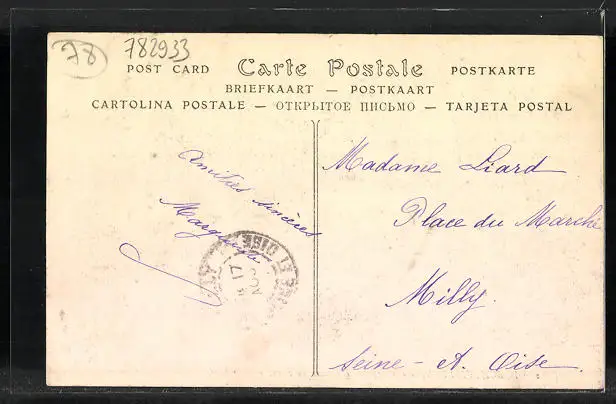 78
782933
POST CARD Carte Postale POSTKARTE
BRIEFKAART — POSTKAART
CARTOLINA POSTALE — ОТКРЫТОЕ ПИСЬМО — TARJETA POSTAL
Amitiés sincères
Marguerite
Madame Liard
Place du Marché
Milly
Seine - et. Oise.
ET OISE
17